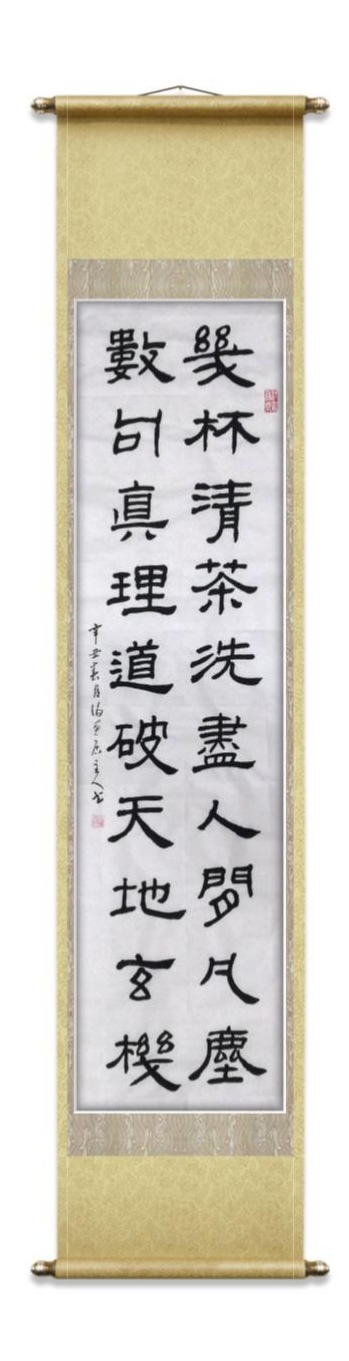 幾杯清茶洗盡人間凡塵
數句真理道破天地玄機
辛丑春月
主人书